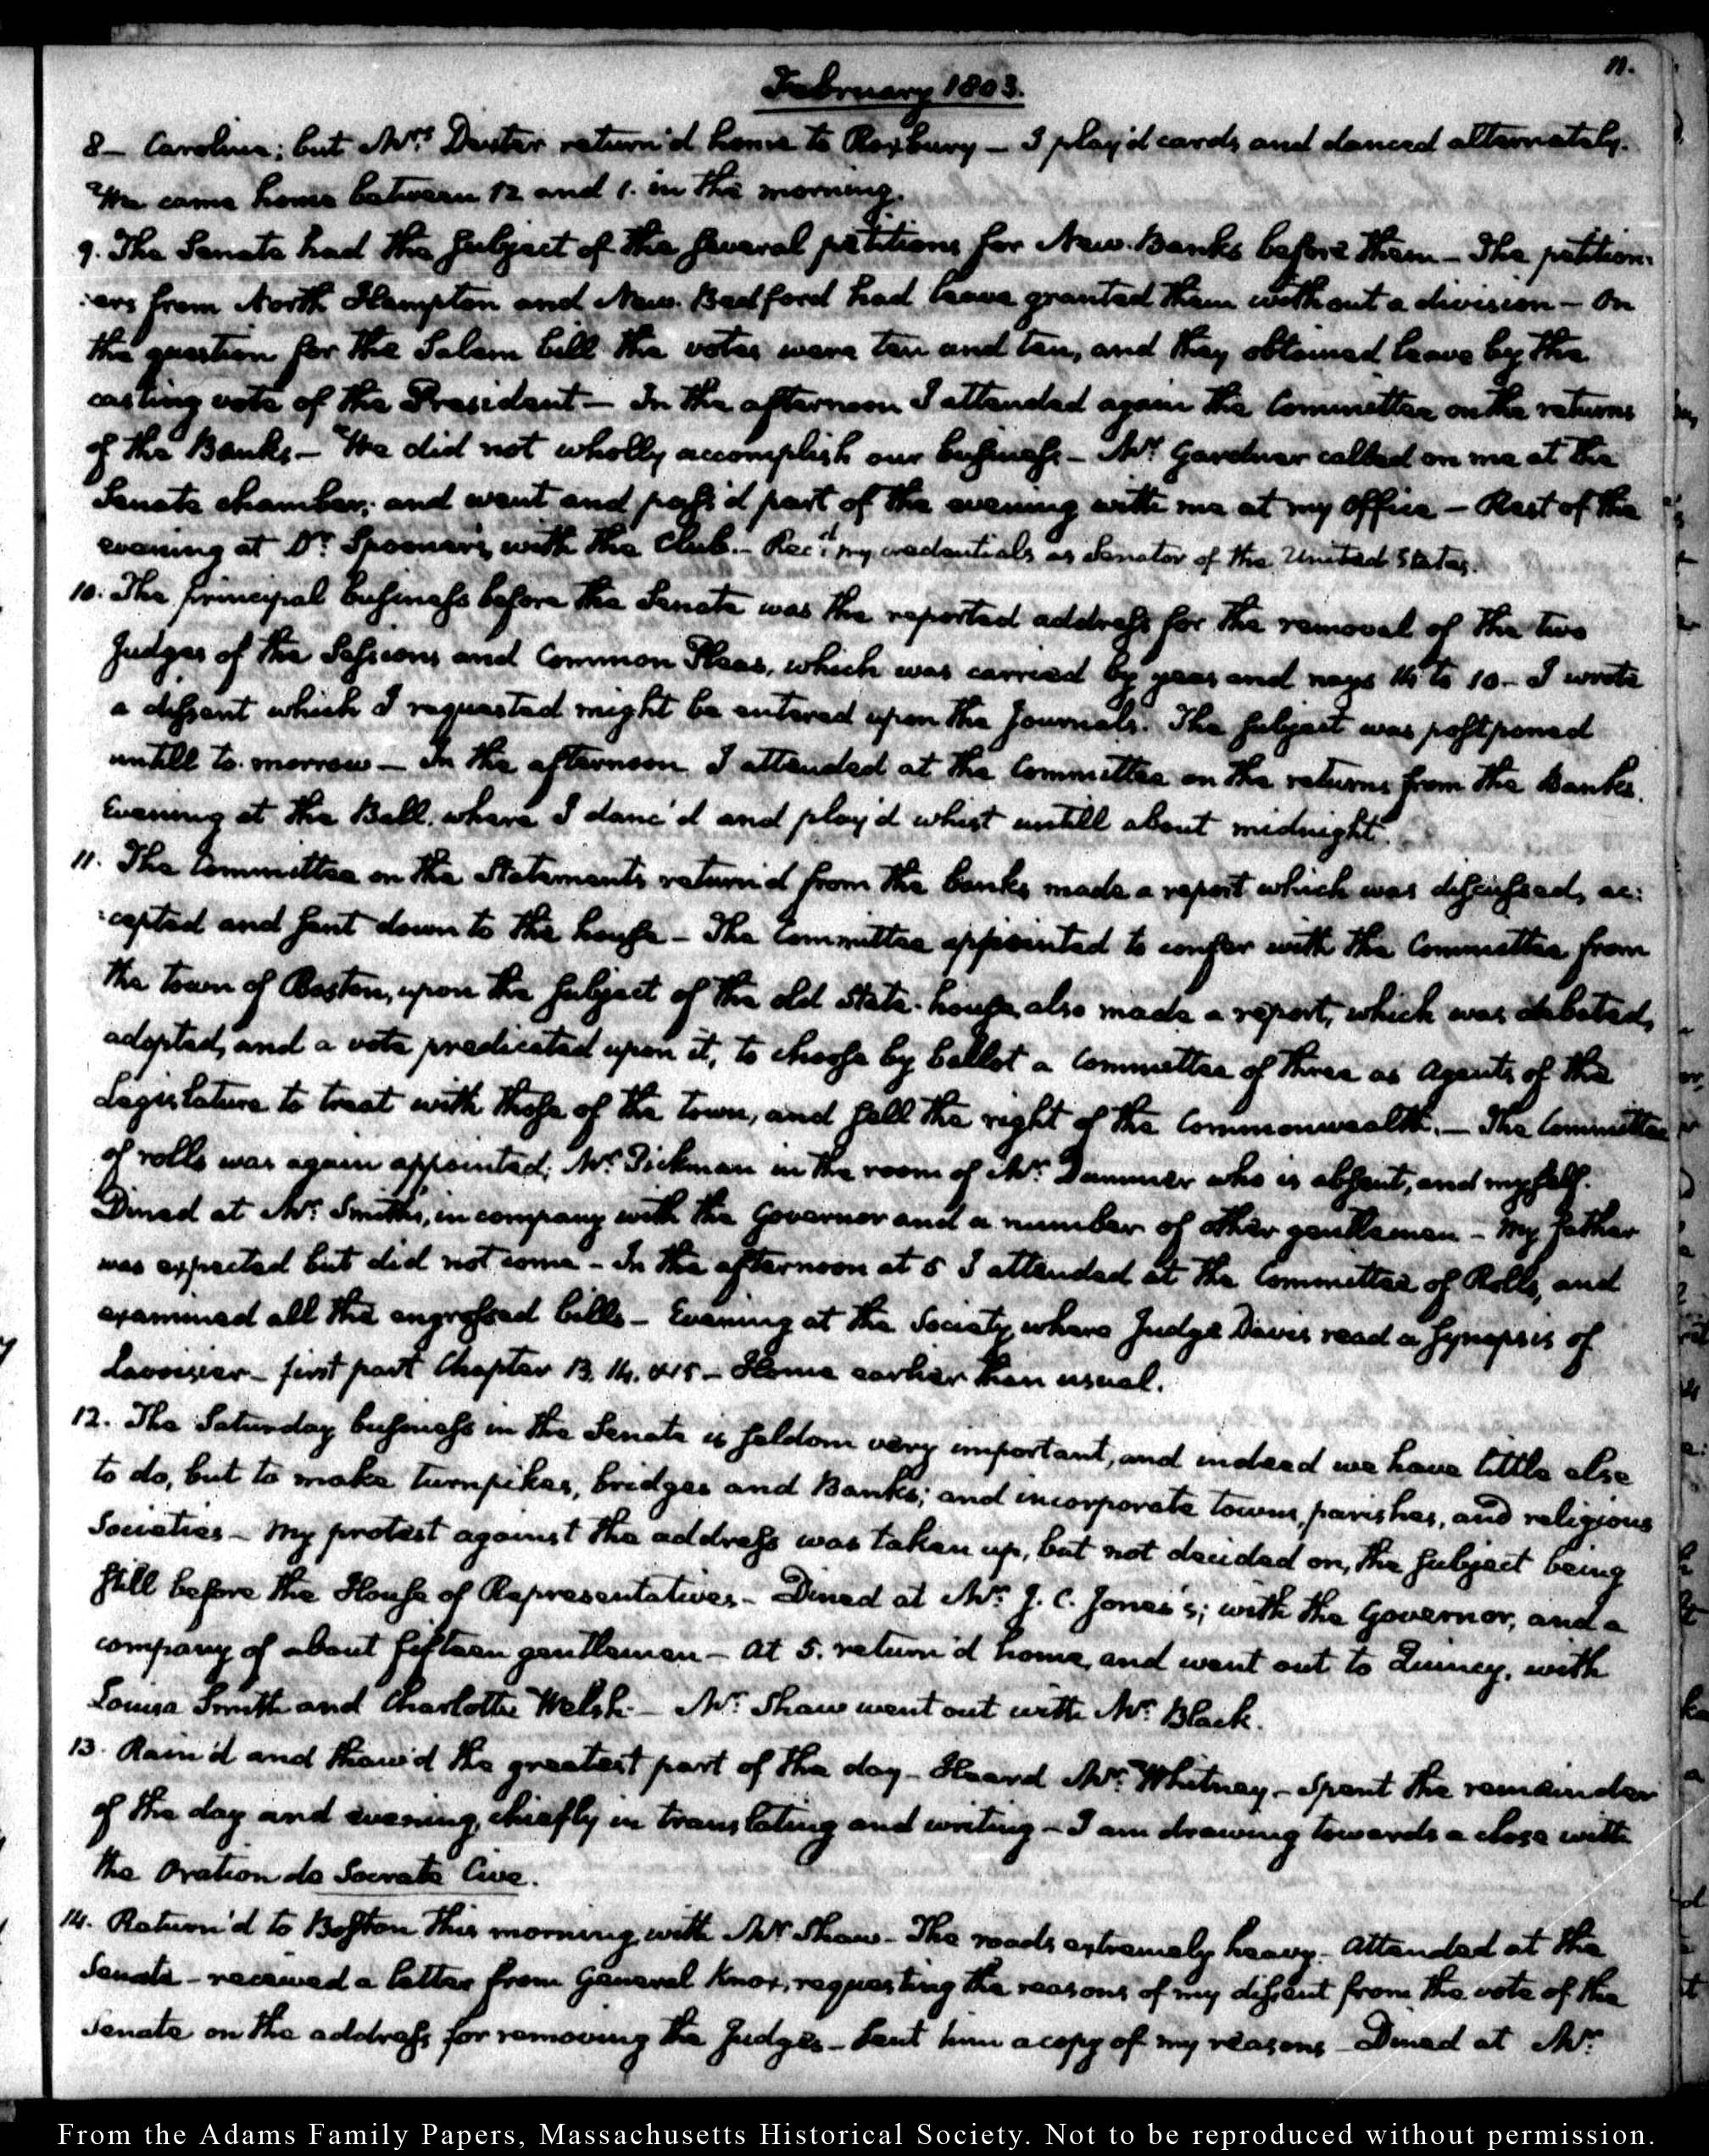 11.
February 1803.
8- Caroline; but Mrs Dexter return'd home to Roxbury - I play'd cards and danced alternately.
We came home between 12 and 1. in the morning.
9. The Senate had the subject of the several petitions for New Banks before them - The petition:
:ers from North Hampton and New-Bedford had leave granted them without a division - On
the question for the Salem bill the votes were ten and ten, and they obtained leave by the
casting vote of the President - In the afternoon I attended again the Committee on the returns
of the Banks - We did not wholly accomplish our business - Mr Gardner called on me at the
Senate chamber; and went and pass'd part of the evening with me at my Office - Rest of the
evening at Dr Spooner's, with the Club. - Recd my credentials as Senator of the United States.
10. The principal business before the Senate was the reported address for the removal of the two
Judges of the Sessions and Common Pleas, which was carried by yeas and nays 14 to 10 - I wrote
a dissent which I requested might be entered upon the Journals. The subject was postponed
untill to-morrow - In the afternoon I attended at the Committee on the returns from the Banks.
Evening at the Ball, where I danc'd and play'd whist untill about midnight.
11. The Committee on the Statements return'd from the banks made a report which was discussed, ac:
:cepted and sent down to the house - The Committee appointed to confer with the Committee from
the town of Boston, upon the subject of the old State-house, also made a report, which was debated,
adopted, and a vote predicated upon it, to choose by ballot a Committee of three as Agents of the
Legislature to treat with those of the town, and sell the right of the Commonwealth. - The Committee
of rolls was again appointed; Mr Pickman in the room of Mr Dummer who is absent, and myself.
Dined at Mr Smith's, in company with the Governor and a number of other gentlemen - My father
was expected but did not come - In the afternoon at 5 I attended at the Committee of Rolls, and
examined all the engrossed bills - Evening at the Society, where Judge Davis read a synopsis of
Lavoisier - first part Chapter 13. 14. & 15 - Home earlier than usual.
12. The Saturday business in the Senate is seldom very important, and indeed we have little else
to do, but to make turnpikes, bridges and Banks; and incorporate towns, parishes, and religious
Societies - My protest against the address was taken up, but not decided on, the subject being
still before the House of Representatives - Dined at Mr J. C. Jones's; with the Governor, and a
company of about fifteen gentlemen - At 5. return'd home, and went out to Quincy, with
Louisa Smith and Charlotte Welsh - Mr Shaw went out with Mr Black.
13. Rain'd and thaw'd the greatest part of the day - Heard Mr Whitney - Spent the remainder
of the day and evening, chiefly in translating and writing - I am drawing towards a close with
the Oration de Socrate Cive.
14. Return'd to Boston this morning with Mr Shaw - The roads extremely heavy - Attended at the
Senate - received a letter from General Knox, requesting the reasons of my dissent from the vote of the
Senate on the address for removing the Judges - Sent him a copy of my reasons - Dined at Mr
From the Adams Family Papers, Massachusetts Historical Society. Not to be reproduced without permission.